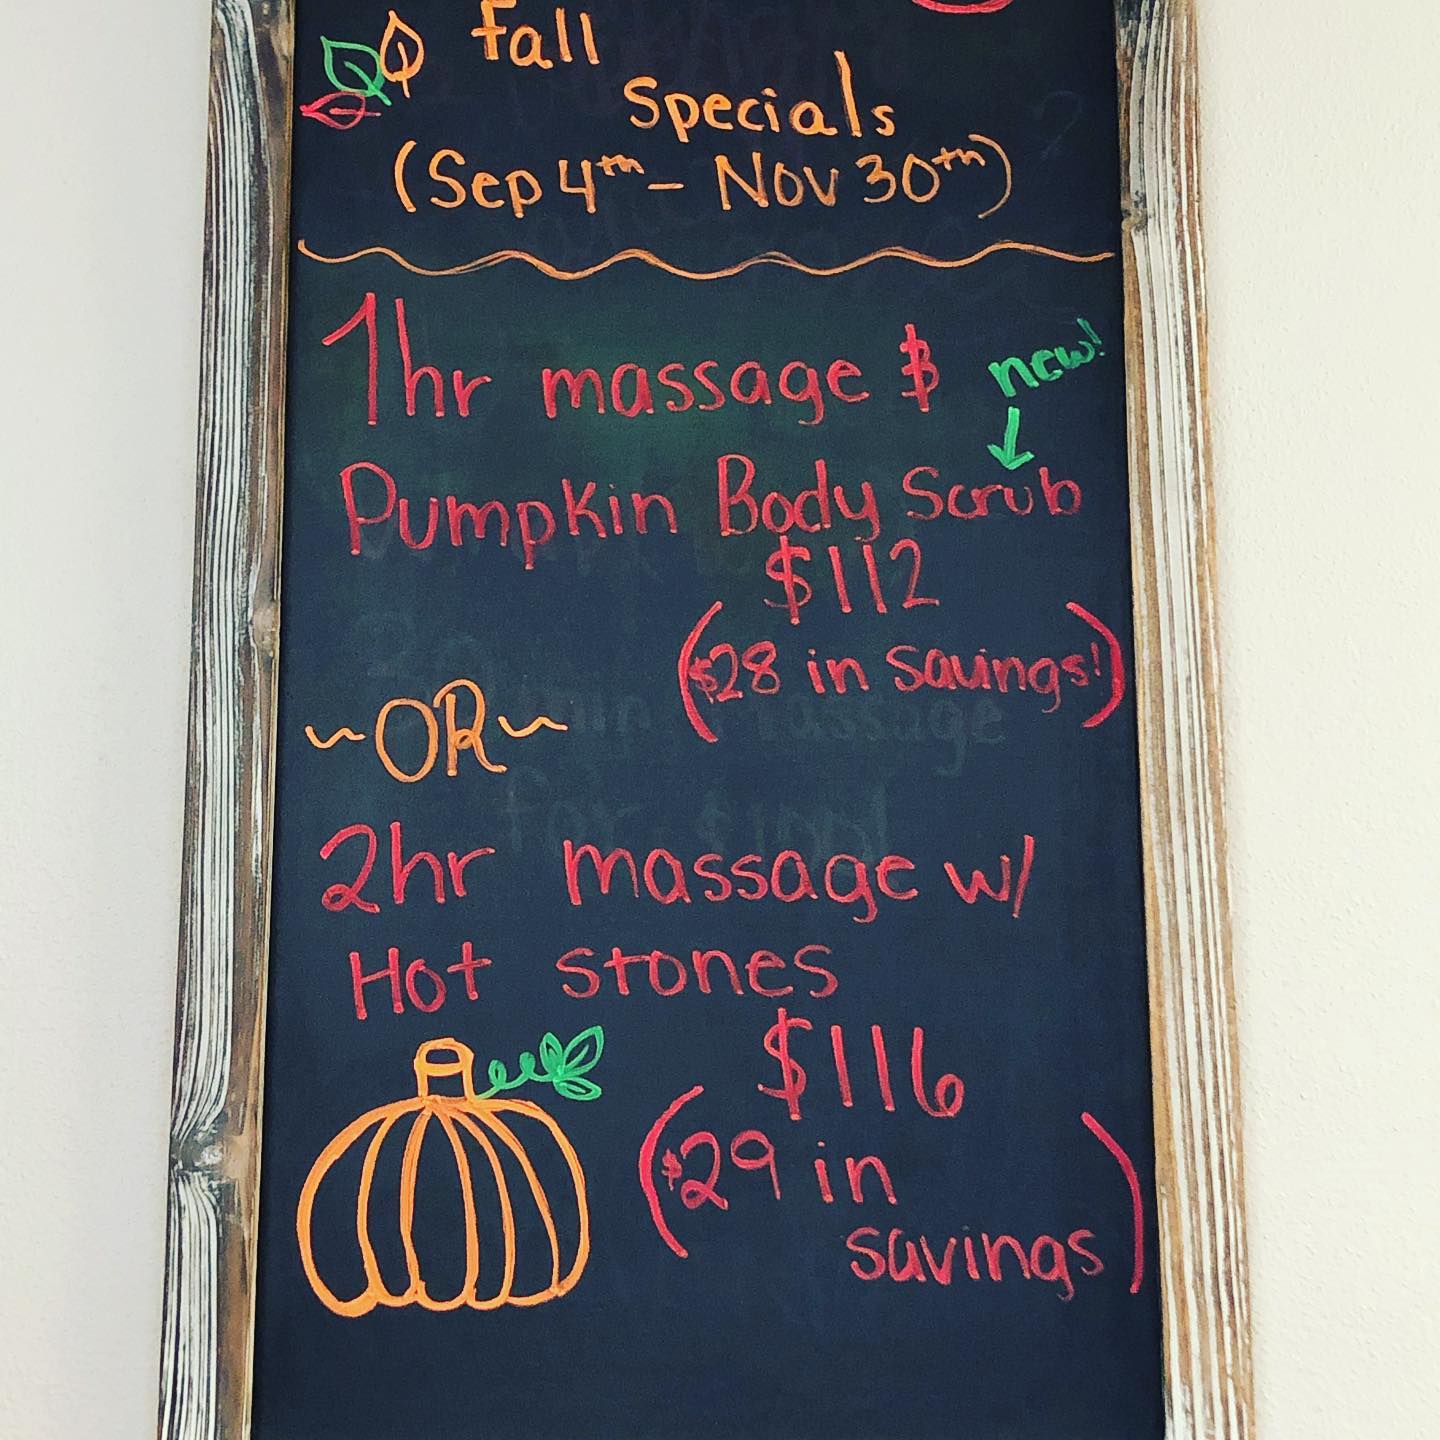 Fall
Specials
(Sep 4th - Nov 30th)
1hr massage &
new!
Pumpkin Body Scrub
$112
($28 in savings!)
~OR~
2hr massage w/
Hot stones
$116
($29 in
savings)